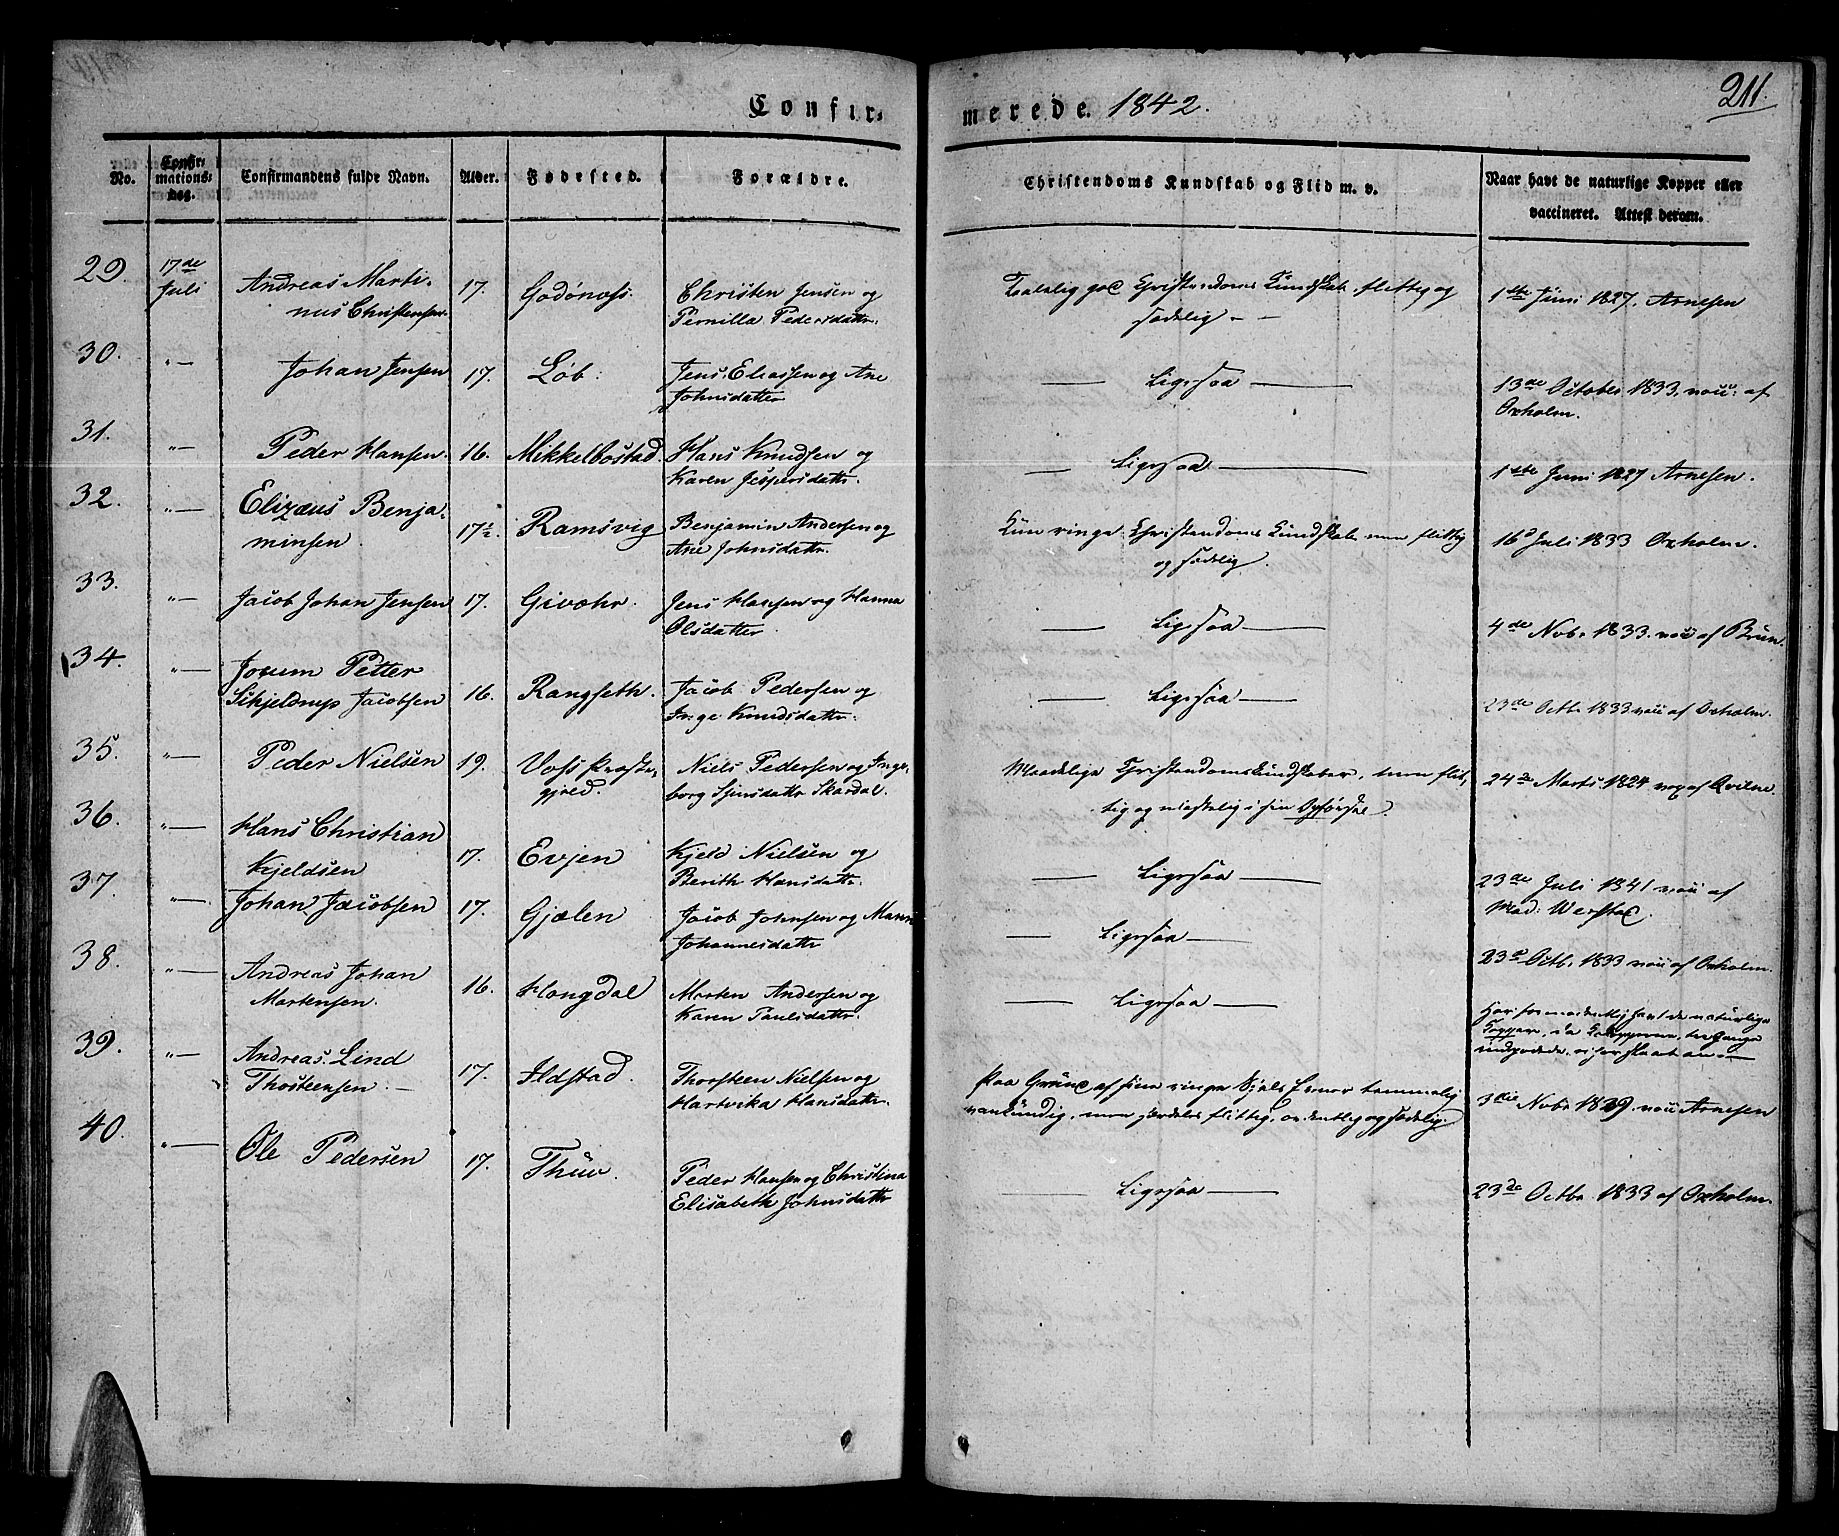 211.
Confir- merede. 1842.
No.
Confir-
mations-
dag.
Confirmandens fulde Navn.
Alder.
Fødested.
Forældre.
Christendoms Kundskab og Flid m. v.
Naar havt de naturlige Kopper eller
vaccineret. Attest derom.
29. 17de
Juli
Andreas Marti-
nus Christensen.
17.
Godønæss.
Christen Jensen og
Pernilla Pedersdattr.
Taalelig god Christendoms Kundskab, flittig og
sædelig. —
1ste Juni 1827. Arnesen
30. "— Johan Jensen 17. Löb.
Jens Eliassen og Ane
Johnsdatter
— Ligesaa —
13de October 1833. af
Oxholm.
31. "— Peder Hansen. 16. Mikkelbostad.
Hans Knudsen og
Karen Jespersdattr.
— Ligesaa —
1ste Juni 1827 Arnesen.
32. "— Elizæus Benja-
minsen.
17½. Ramsvig
Benjamin Andersen og
Ane Johnsdattr.
Kun ringe Christendoms Kundskab men flittig
og sædelig.
16d Juli 1833 Oxholm.
33. "— Jacob Johan Jensen 17. Givær.
Jens Hansen og Hanna
Olsdatter
— Ligesaa —
4de Novb. 1833. af Brun.
34. "— Jorum Petter
Schjeldrup Jacobsen
16. Rangseth.
Jacob Pedersen og
Inge Knudsdattr.
— Ligesaa —
23de Octb. 1833 af Oxholm.
35. "— Peder Nielsen 19. Voss Præste-
gjeld.
Niels Pedersen og Inge-
borg Skardal.
Maadelige Christendomskundskaber, men flit-
tig og i sin Opførsel.
24de Marts 1824 af
36. "— Hans Christian
Kjeldsen
17. Evjen
Kjeld Nielsen og
Berith Hansdattr.
— Ligesaa —
23de Juli 1841 af
Mad:
37. "— Johan Jacobsen 17. Gjælen
Jacob Johnsen og
Johannesdattr
— Ligesaa —
23d Octb. 1833 af Oxholm.
38. "— Andreas Johan
Martensen.
16. Hongdal
Morten Andersen og
Karen Paulsdattr.
— Ligesaa —
Har formodentlig havt de naturlige
Kopper, da Kokopperne tre Gange
indpodede, ei har slaaet an. —
39. "— Andreas Lind
Thosteensen. —
17. Ildstad.
Thorsteen Nielsen og
Hartvika Hansdattr.
Paa Grund af sine ringe Sjels Evner temmelig
vankundig, men særdeles flittig, ordentlig og sædelig.
3die Novb. 1839. Arnesen
40. "— Ole Pedersen 17. Thuv.
Peder Hansen og Christina
Elisabeth Johnsdattr
— Ligesaa —
23de Octbr 1833 af Oxholm.